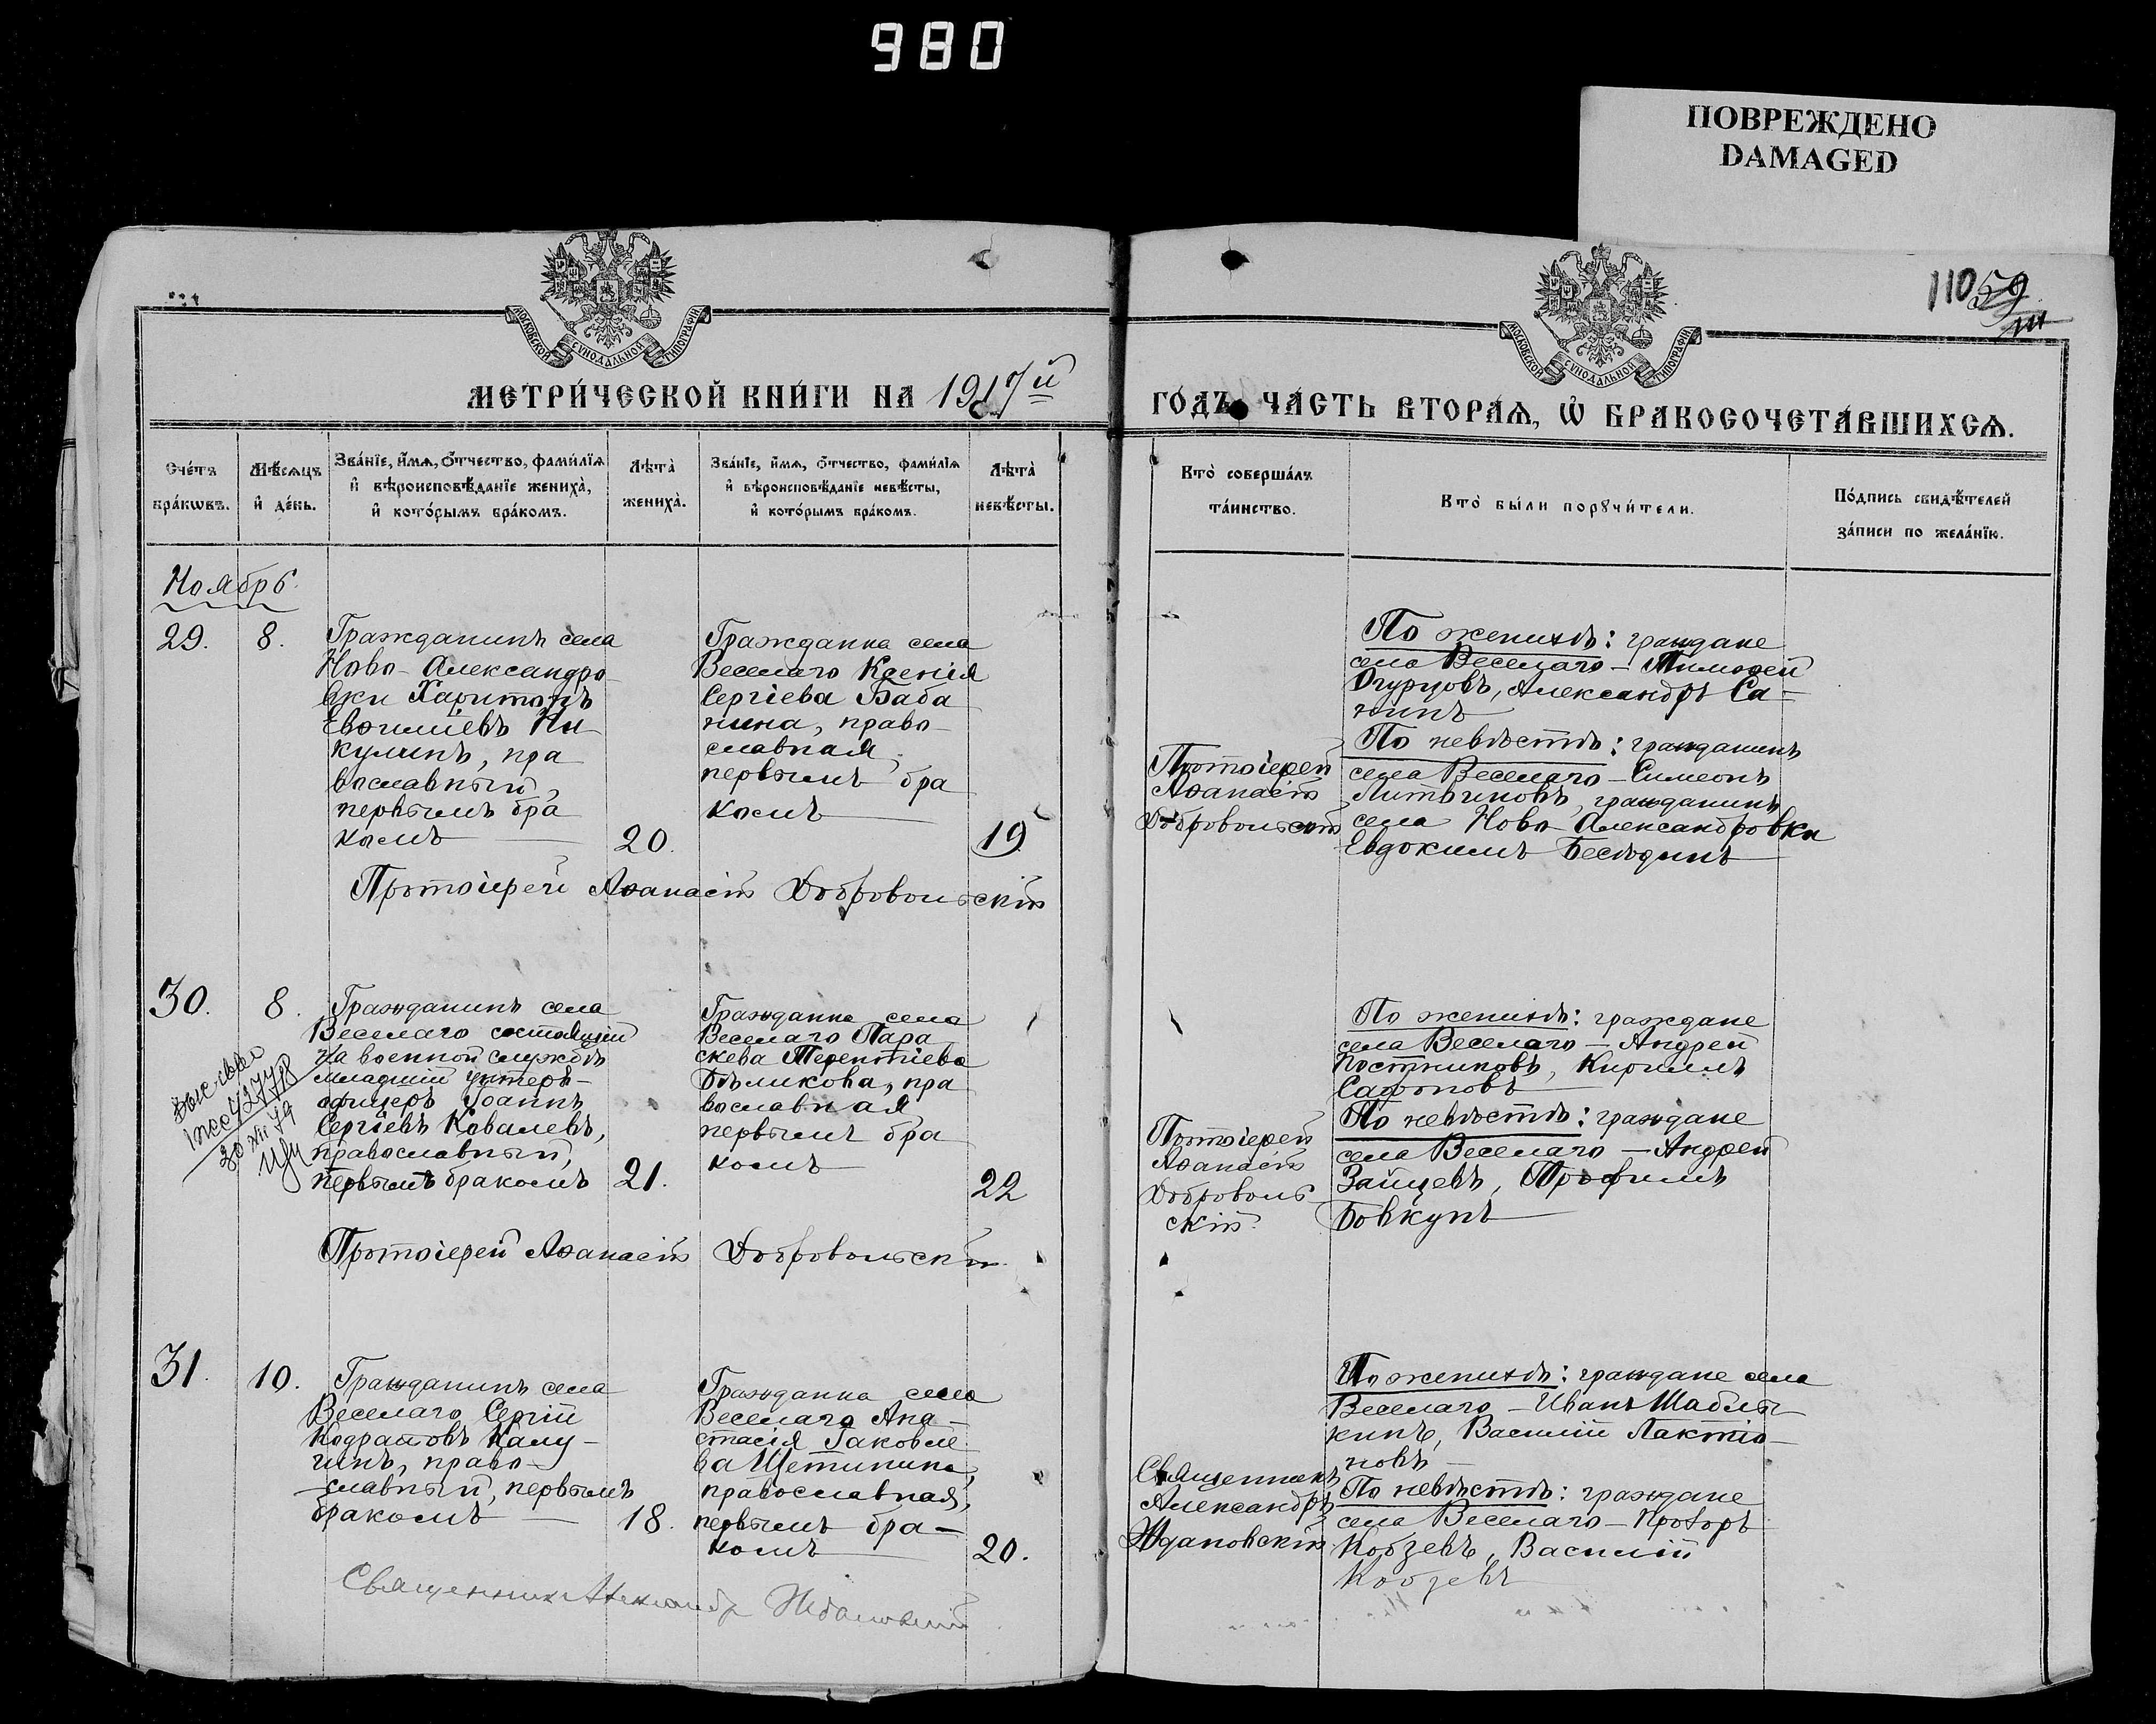 980
ПОВРЕЖДЕНО
DAMAGED
110 59
МОСКОВСКОЙ СУНОДАЛЬНОЙ ТИПОГРАФІИ
МОСКОВСКОЙ СУНОДАЛЬНОЙ ТИПОГРАФІИ
МЕТРИ́ЧЕСКОЙ КНИ́ГИ НА 1917й
ГО́ДЪ, ЧА́СТЬ ВТОРА́Ѧ, Ѡ҆ БРАКОСОЧЕТА́ВШИХСѦ.
Сче́тъ
бра́кѡвъ.
Мѣ́сѧцъ
и҆ де́нь.
Зва́нїе, и҆́мѧ, ѻ҆́тчество, фами́лїѧ
и҆ вѣроисповѣ́данїе жениха̀,
и҆ кото́рымъ бра́комъ.
Лѣта̀
жениха̀.
Зва́нїе, и҆́мѧ, ѻ҆́тчество, фами́лїѧ
и҆ вѣроисповѣ́данїе невѣ́сты,
и҆ кото́рымъ бра́комъ.
Лѣта̀
невѣ́сты.
Кто̀ соверша́лъ
та́инство.
Кто̀ бы́ли порꙋчи́тели.
По́дпись свидѣ́телей
за́писи по жела́нїю.
Ноябрь.
29.
8.
Гражданинъ села
Ново-Александро
вки Харитонъ
Евѳиміевъ Ни
кулинъ, пра
вославный,
первымъ бра
комъ
20.
Гражданка села
Веселаго Ксенія
Сергіева Баба
нина, право
славная,
первымъ бра
комъ
19
Протоіерей
Аѳанасій
Добровольскій
По женихѣ: граждане
села Веселаго – Тимоѳей
Огурцовъ, Александръ Са-
нинъ
По невѣстѣ: гражданинъ
села Веселаго – Симеонъ
Литвиновъ, гражданинъ
села Ново-Александровки
Евдокимъ Бесѣдинъ
Протоіерей Аѳанасій Добровольскій
30.
8.
Гражданинъ села
Веселаго состоящій
на военной службѣ
младшій унтеръ-
офицеръ Іоаннъ
Сергіевъ Ковалевъ,
православный,
первымъ бракомъ
21.
Гражданка села
Веселаго Пара
скева Терентіева
Бѣликова, пра
вославная,
первымъ бра
комъ
22
Протоіерей
Аѳанасій
Доброволь
скій.
По женихѣ: граждане
села Веселаго – Андрей
Постниковъ, Кириллъ
Сафоновъ
По невѣстѣ: граждане
села Веселаго – Андрей
Зайцевъ, Трофимъ
Бовкунъ
Протоіерей Аѳанасій Добровольскій.
31.
10.
Гражданинъ села
Веселаго Сергій
Кодратовъ Калу-
гинъ, право-
славный, первымъ
бракомъ
18.
Гражданка села
Веселаго Ана-
стасія Іаковле
ва Щетинина,
православная,
первымъ бра-
комъ
20.
Священникъ
Александръ
Ждановскій
По женихѣ: граждане села
Веселаго – Иванъ Шабля
кинъ, Василій Лактіо-
новъ
По невѣстѣ: граждане
села Веселаго – Прохоръ
Кобзевъ, Василій
Кобзевъ
Священник Александр Ждановский